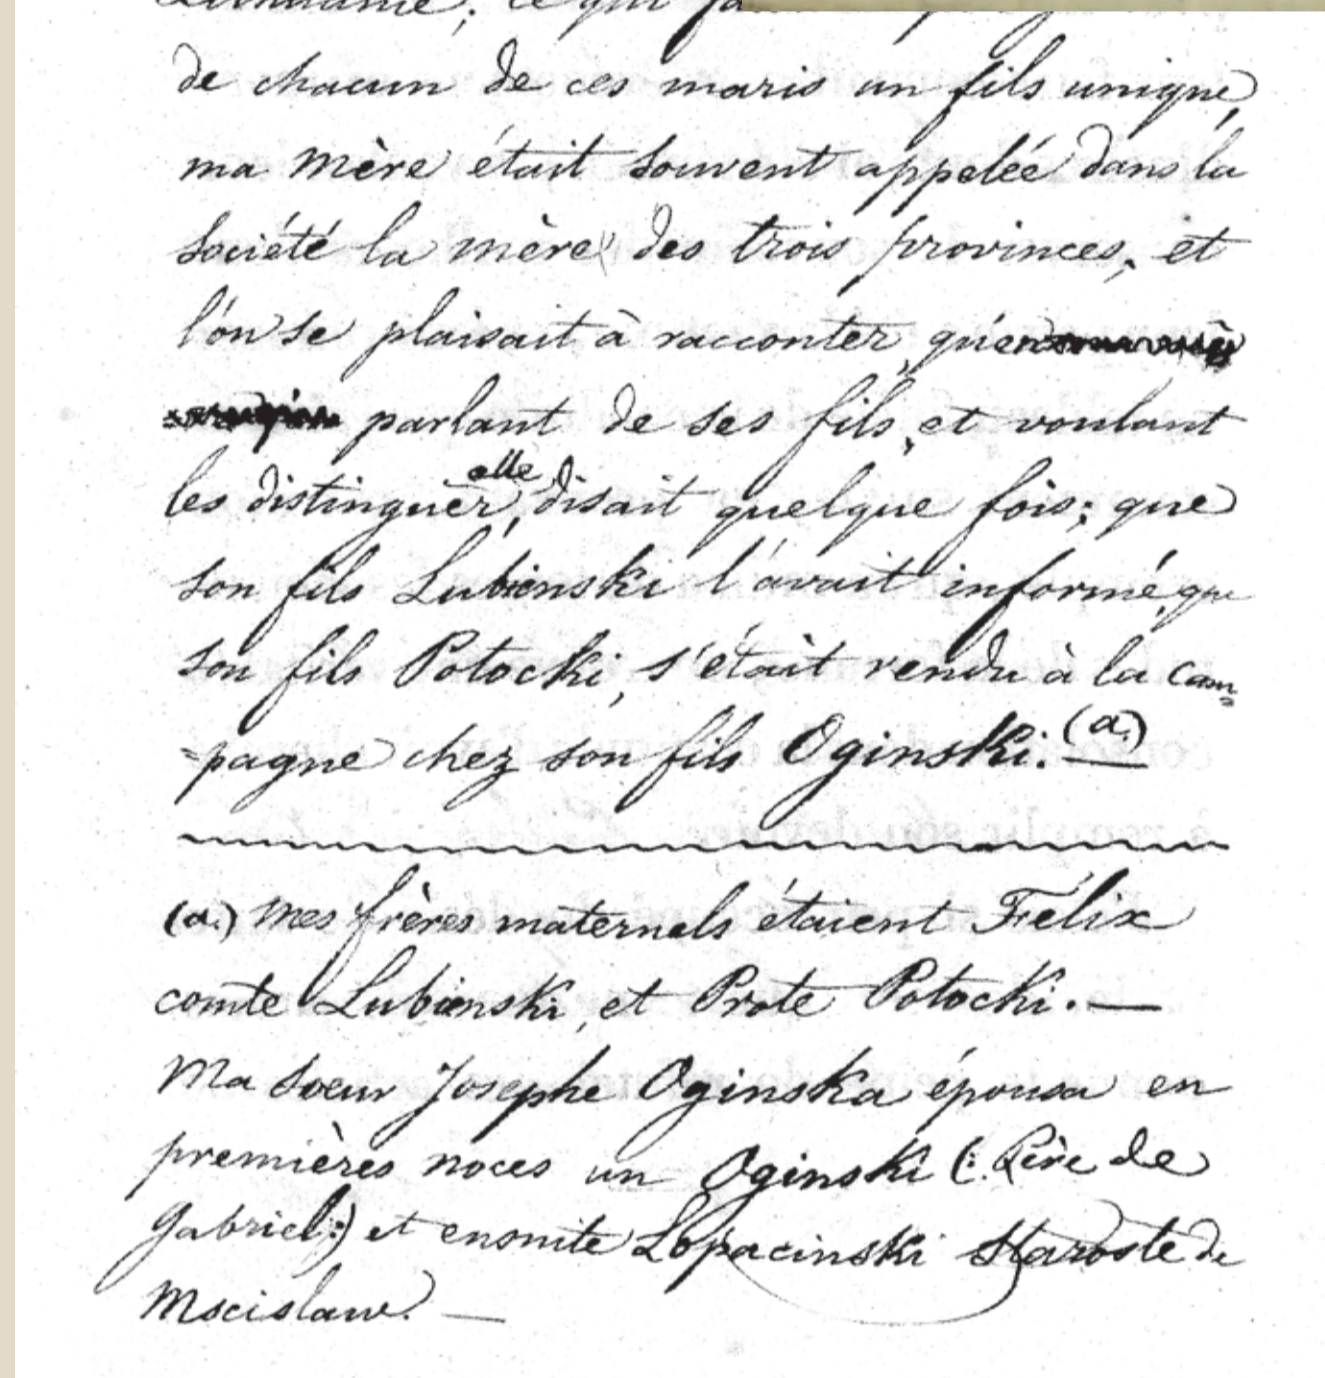 Lithuanie; ce qui
de chacun de ces maris un fils unique,
ma mère était souvent appelée dans la
société la mère des trois provinces, et
l'on se plaisait à racconter, qu'en
parlant de ses fils, et voulant
les distinguer, elle disait quelque fois; que
son fils Lubienski l'avait informé, que
son fils Potocki, s'était rendu à la cam=
=pagne chez son fils Oginski. (a.) —
(a.) mes frères maternels étaient Félix
comte Lubienski, et Prote Potocki. —
Ma soeur Josephe Oginska épousa en
premières noces un Oginski (: Père de
Gabriel :) et ensuite Lopacinski Staroste de
Mscislaw. —